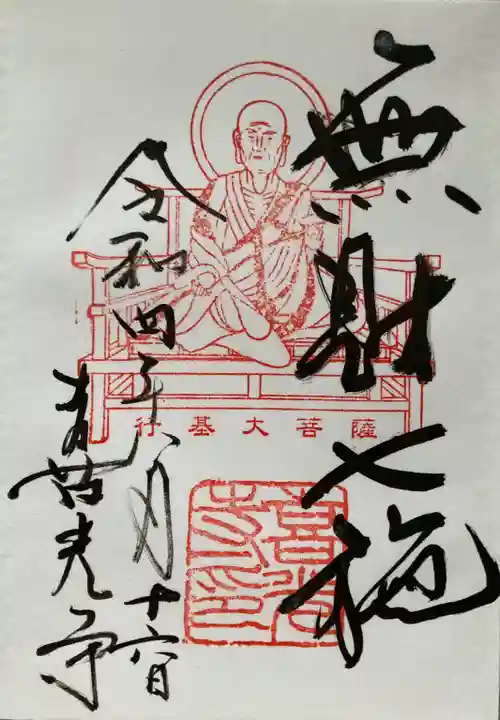 無財七施
令和四年八月十六日
喜光寺
行基大菩薩
喜光寺印